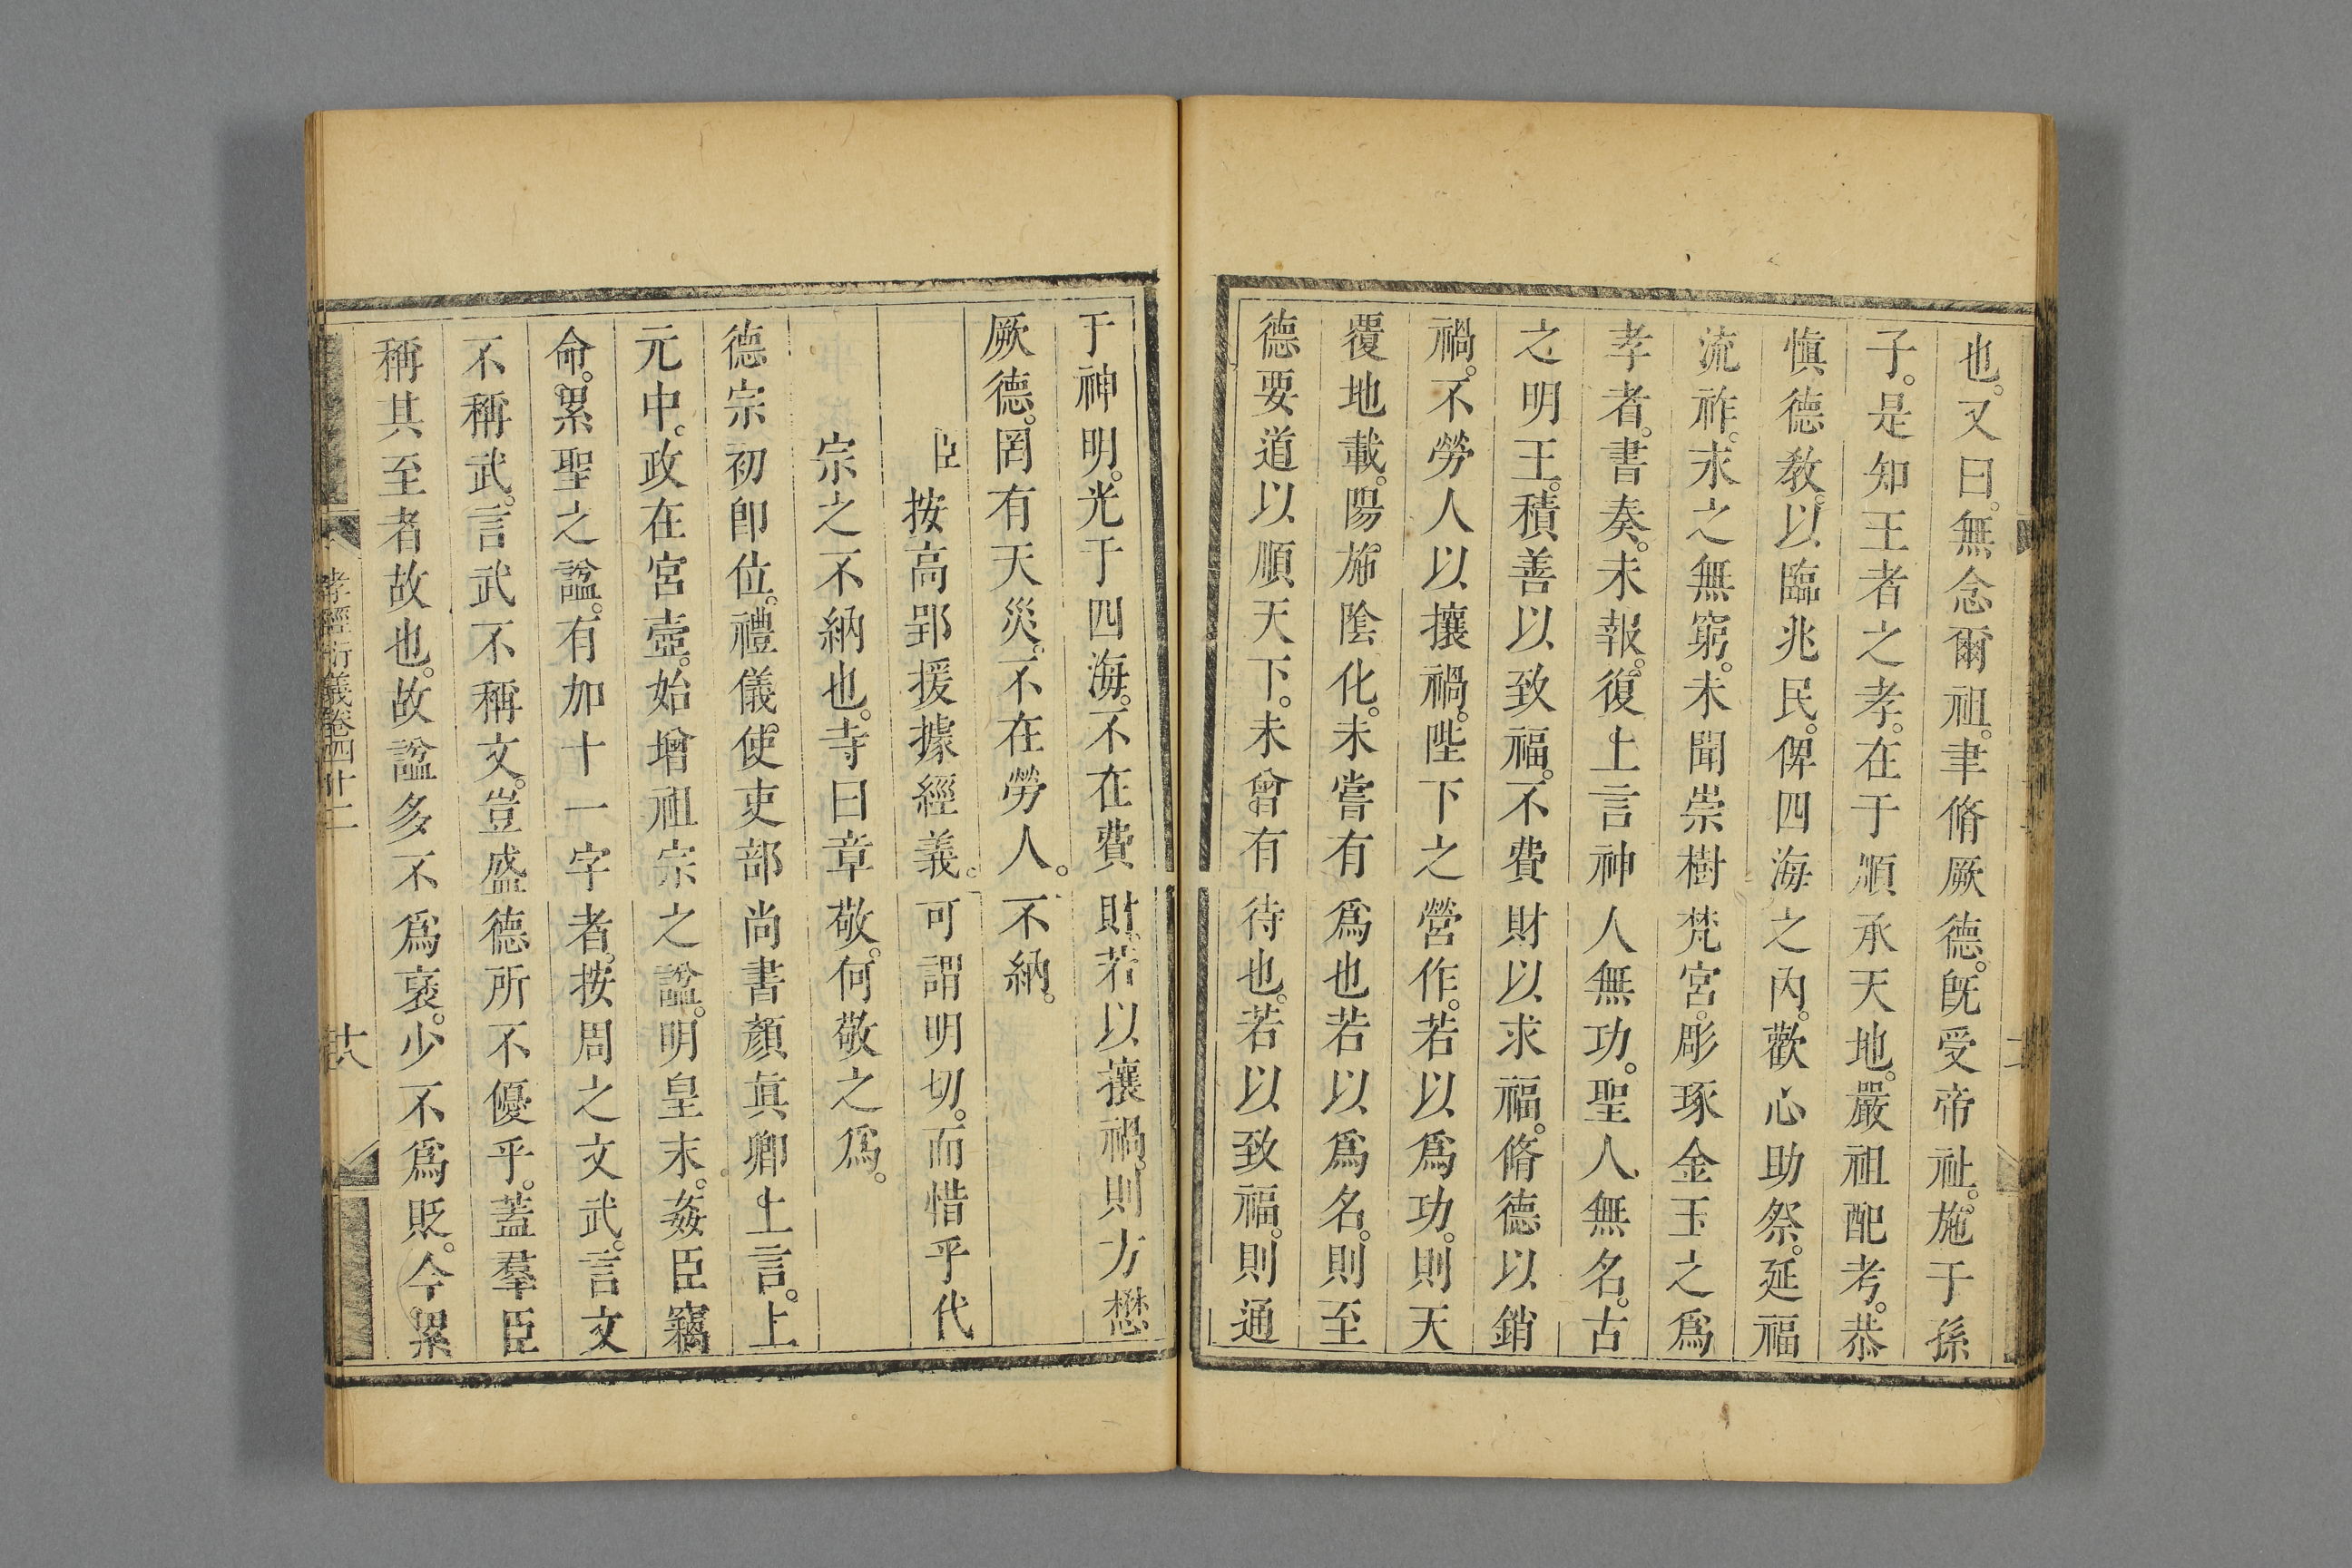 也。又曰。無念爾祖。聿脩厥德。既受帝祉。施于孫
子。是知王者之孝。在于順承天地。嚴祖配考。恭
愼德教。以臨兆民。俾四海之內。歡心助祭。延福
流祚。求之無窮。未聞崇樹梵宮。彫琢金玉之爲
孝者。書奏。未報。復上言神人無功。聖人無名。古
之明王。積善以致福。不費財以求福。脩德以銷
禍。不勞人以攘禍。陛下之營作。若以爲功。則天
覆地載。陽施陰化。未嘗有爲也若以爲名。則至
德要道以順天下。未曾有待也。若以致福。則通
于神明。光于四海。不在費財。若以攘禍。則方懋
厥德。罔有天災。不在勞人。不納。
臣按高郢援據經義。可謂明切。而惜乎代
宗之不納也。寺曰章敬。何敬之爲。
德宗初卽位。禮儀使吏部尚書顏眞卿上言。上
元中。政在宮壼。始增祖宗之諡。明皇末。姦臣竊
命。累聖之諡。有加十一字者。按周之文武。言文
不稱武。言武不稱文。豈盛德所不優乎。蓋羣臣
稱其至者故也。故諡多不爲褒。少不爲貶。今累
孝經衍義卷四十二
十八